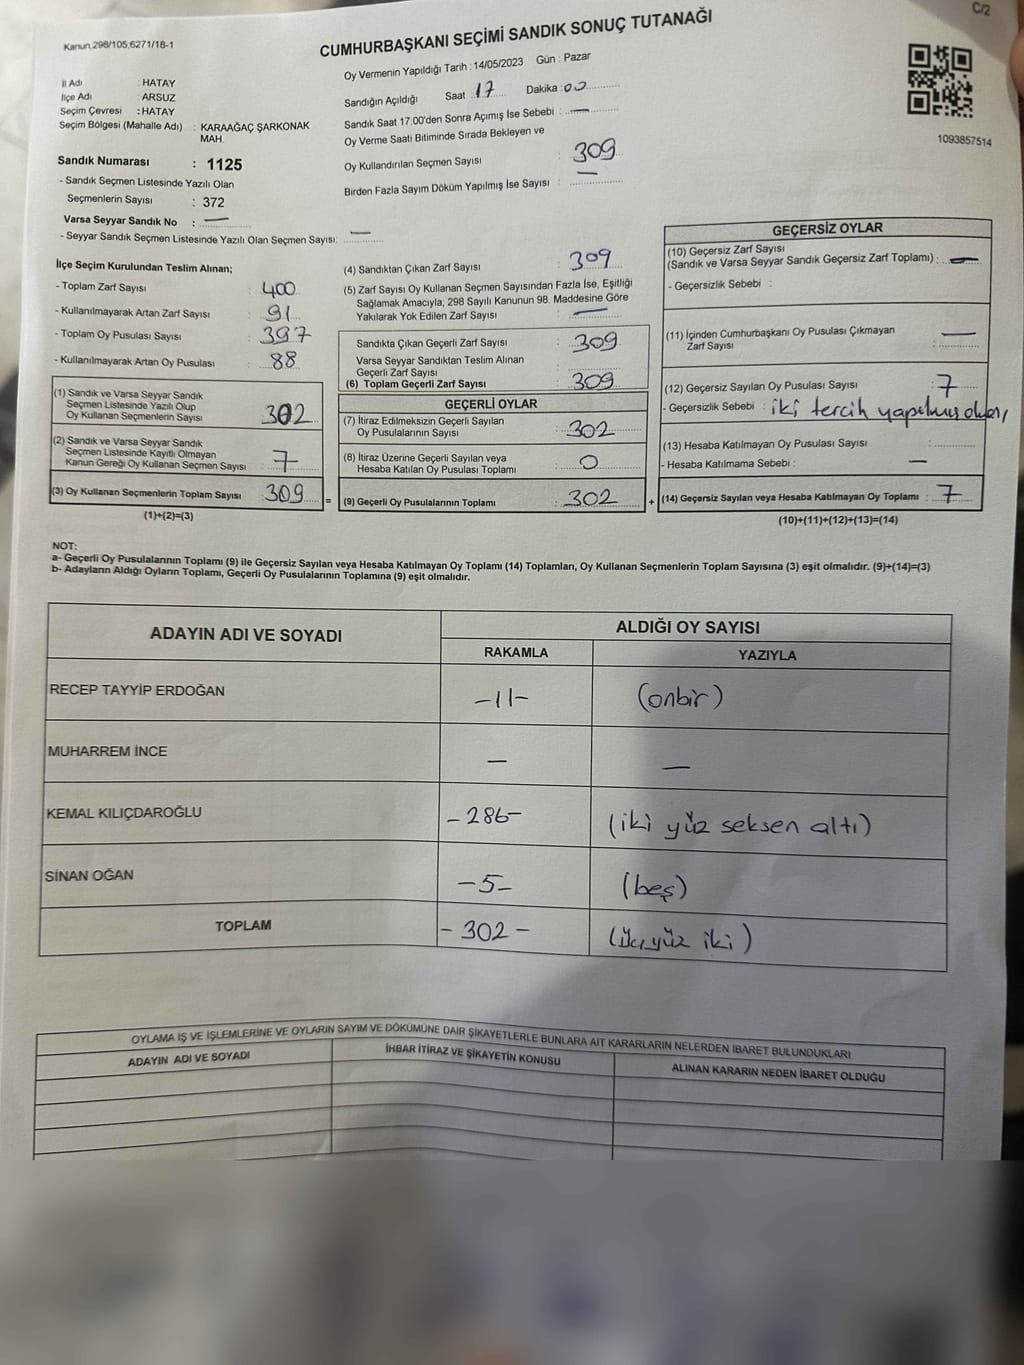 C/2
Kanun.298/105,6271/18-1
CUMHURBAŞKANI SEÇİMİ SANDIK SONUÇ TUTANAĞI
İl Adı : HATAY
İlçe Adı : ARSUZ
Seçim Çevresi : HATAY
Seçim Bölgesi (Mahalle Adı) : KARAAĞAÇ ŞARKONAK
MAH.
Sandık Numarası : 1125
- Sandık Seçmen Listesinde Yazılı Olan
Seçmenlerin Sayısı : 372
Varsa Seyyar Sandık No : —
- Seyyar Sandık Seçmen Listesinde Yazılı Olan Seçmen Sayısı: —
Oy Vermenin Yapıldığı Tarih : 14/05/2023 Gün : Pazar
Sandığın Açıldığı Saat : 17 Dakika : 00
Sandık Saat 17.00'den Sonra Açımış İse Sebebi : —
Oy Verme Saati Bitiminde Sırada Bekleyen ve
Oy Kullandırılan Seçmen Sayısı : 309
Birden Fazla Sayım Döküm Yapılmış İse Sayısı : —
1093857514
İlçe Seçim Kurulundan Teslim Alınan;
- Toplam Zarf Sayısı : 400
- Kullanılmayarak Artan Zarf Sayısı : 91
- Toplam Oy Pusulası Sayısı : 397
- Kullanılmayarak Artan Oy Pusulası : 88
(1) Sandık ve Varsa Seyyar Sandık
Seçmen Listesinde Yazılı Olup
Oy Kullanan Seçmenlerin Sayısı : 302
(2) Sandık ve Varsa Seyyar Sandık
Seçmen Listesinde Kayıtlı Olmayan
Kanun Gereği Oy Kullanan Seçmen Sayısı : 7
(3) Oy Kullanan Seçmenlerin Toplam Sayısı : 309
(1)+(2)=(3)
(4) Sandıktan Çıkan Zarf Sayısı : 309
(5) Zarf Sayısı Oy Kullanan Seçmen Sayısından Fazla İse, Eşitliği
Sağlamak Amacıyla; 298 Sayılı Kanunun 98. Maddesine Göre
Yakılarak Yok Edilen Zarf Sayısı : —
Sandıkta Çıkan Geçerli Zarf Sayısı : 309
Varsa Seyyar Sandıktan Teslim Alınan
Geçerli Zarf Sayısı :
(6) Toplam Geçerli Zarf Sayısı : 309
GEÇERLİ OYLAR
(7) İtiraz Edilmeksizin Geçerli Sayılan
Oy Pusulalarının Sayısı : 302
(8) İtiraz Üzerine Geçerli Sayılan veya
Hesaba Katılan Oy Pusulası Toplamı : 0
= (9) Geçerli Oy Pusulalarının Toplamı : 302 +
GEÇERSİZ OYLAR
(10) Geçersiz Zarf Sayısı
(Sandık ve Varsa Seyyar Sandık Geçersiz Zarf Toplamı) : —
- Geçersizlik Sebebi :
(11) İçinden Cumhurbaşkanı Oy Pusulası Çıkmayan
Zarf Sayısı : —
(12) Geçersiz Sayılan Oy Pusulası Sayısı : 7
- Geçersizlik Sebebi : iki tercih yapılmış
(13) Hesaba Katılmayan Oy Pusulası Sayısı :
- Hesaba Katılmama Sebebi : —
(14) Geçersiz Sayılan veya Hesaba Katılmayan Oy Toplamı : 7
(10)+(11)+(12)+(13)=(14)
NOT:
a- Geçerli Oy Pusulalarının Toplamı (9) ile Geçersiz Sayılan veya Hesaba Katılmayan Oy Toplamı (14) Toplamları, Oy Kullanan Seçmenlerin Toplam Sayısına (3) eşit olmalıdır. (9)+(14)=(3)
b- Adayların Aldığı Oyların Toplamı, Geçerli Oy Pusulalarının Toplamına (9) eşit olmalıdır.
ADAYIN ADI VE SOYADI ALDIĞI OY SAYISI
RAKAMLA YAZIYLA
RECEP TAYYİP ERDOĞAN -11- (onbir)
MUHARREM İNCE — —
KEMAL KILIÇDAROĞLU -286- (iki yüz seksen altı)
SİNAN OĞAN -5- (beş)
TOPLAM -302- (üçyüz iki)
OYLAMA İŞ VE İŞLEMLERİNE VE OYLARIN SAYIM VE DÖKÜMÜNE DAİR ŞİKAYETLERLE BUNLARA AİT KARARLARIN NELERDEN İBARET BULUNDUKLARI
ADAYIN ADI VE SOYADI İHBAR İTİRAZ VE ŞİKAYETİN KONUSU ALINAN KARARIN NEDEN İBARET OLDUĞU